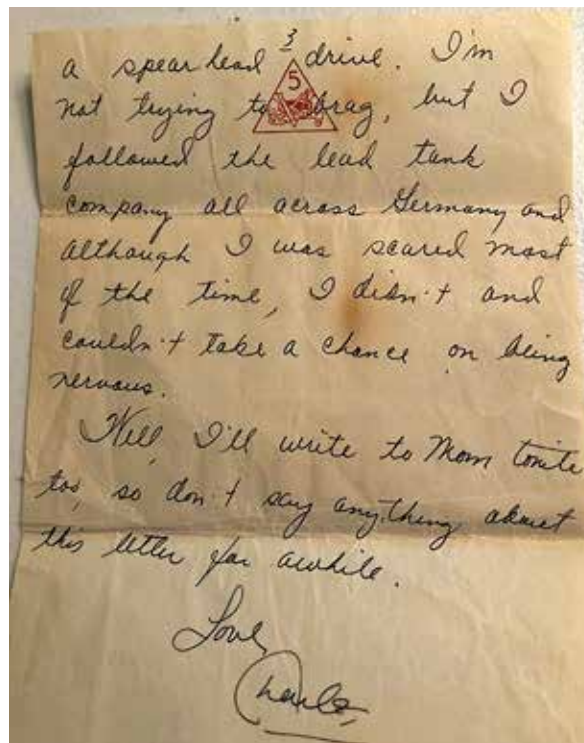 3
a spearhead drive. I'm
5
not trying to brag, but I
followed the lead tank
company all across Germany and
although I was scared most
of the time, I didn't and
couldn't take a chance on being
nervous.
Well, I'll write to Mom tonite
too, so don't say anything about
this letter for awhile.
Love,
Charles,